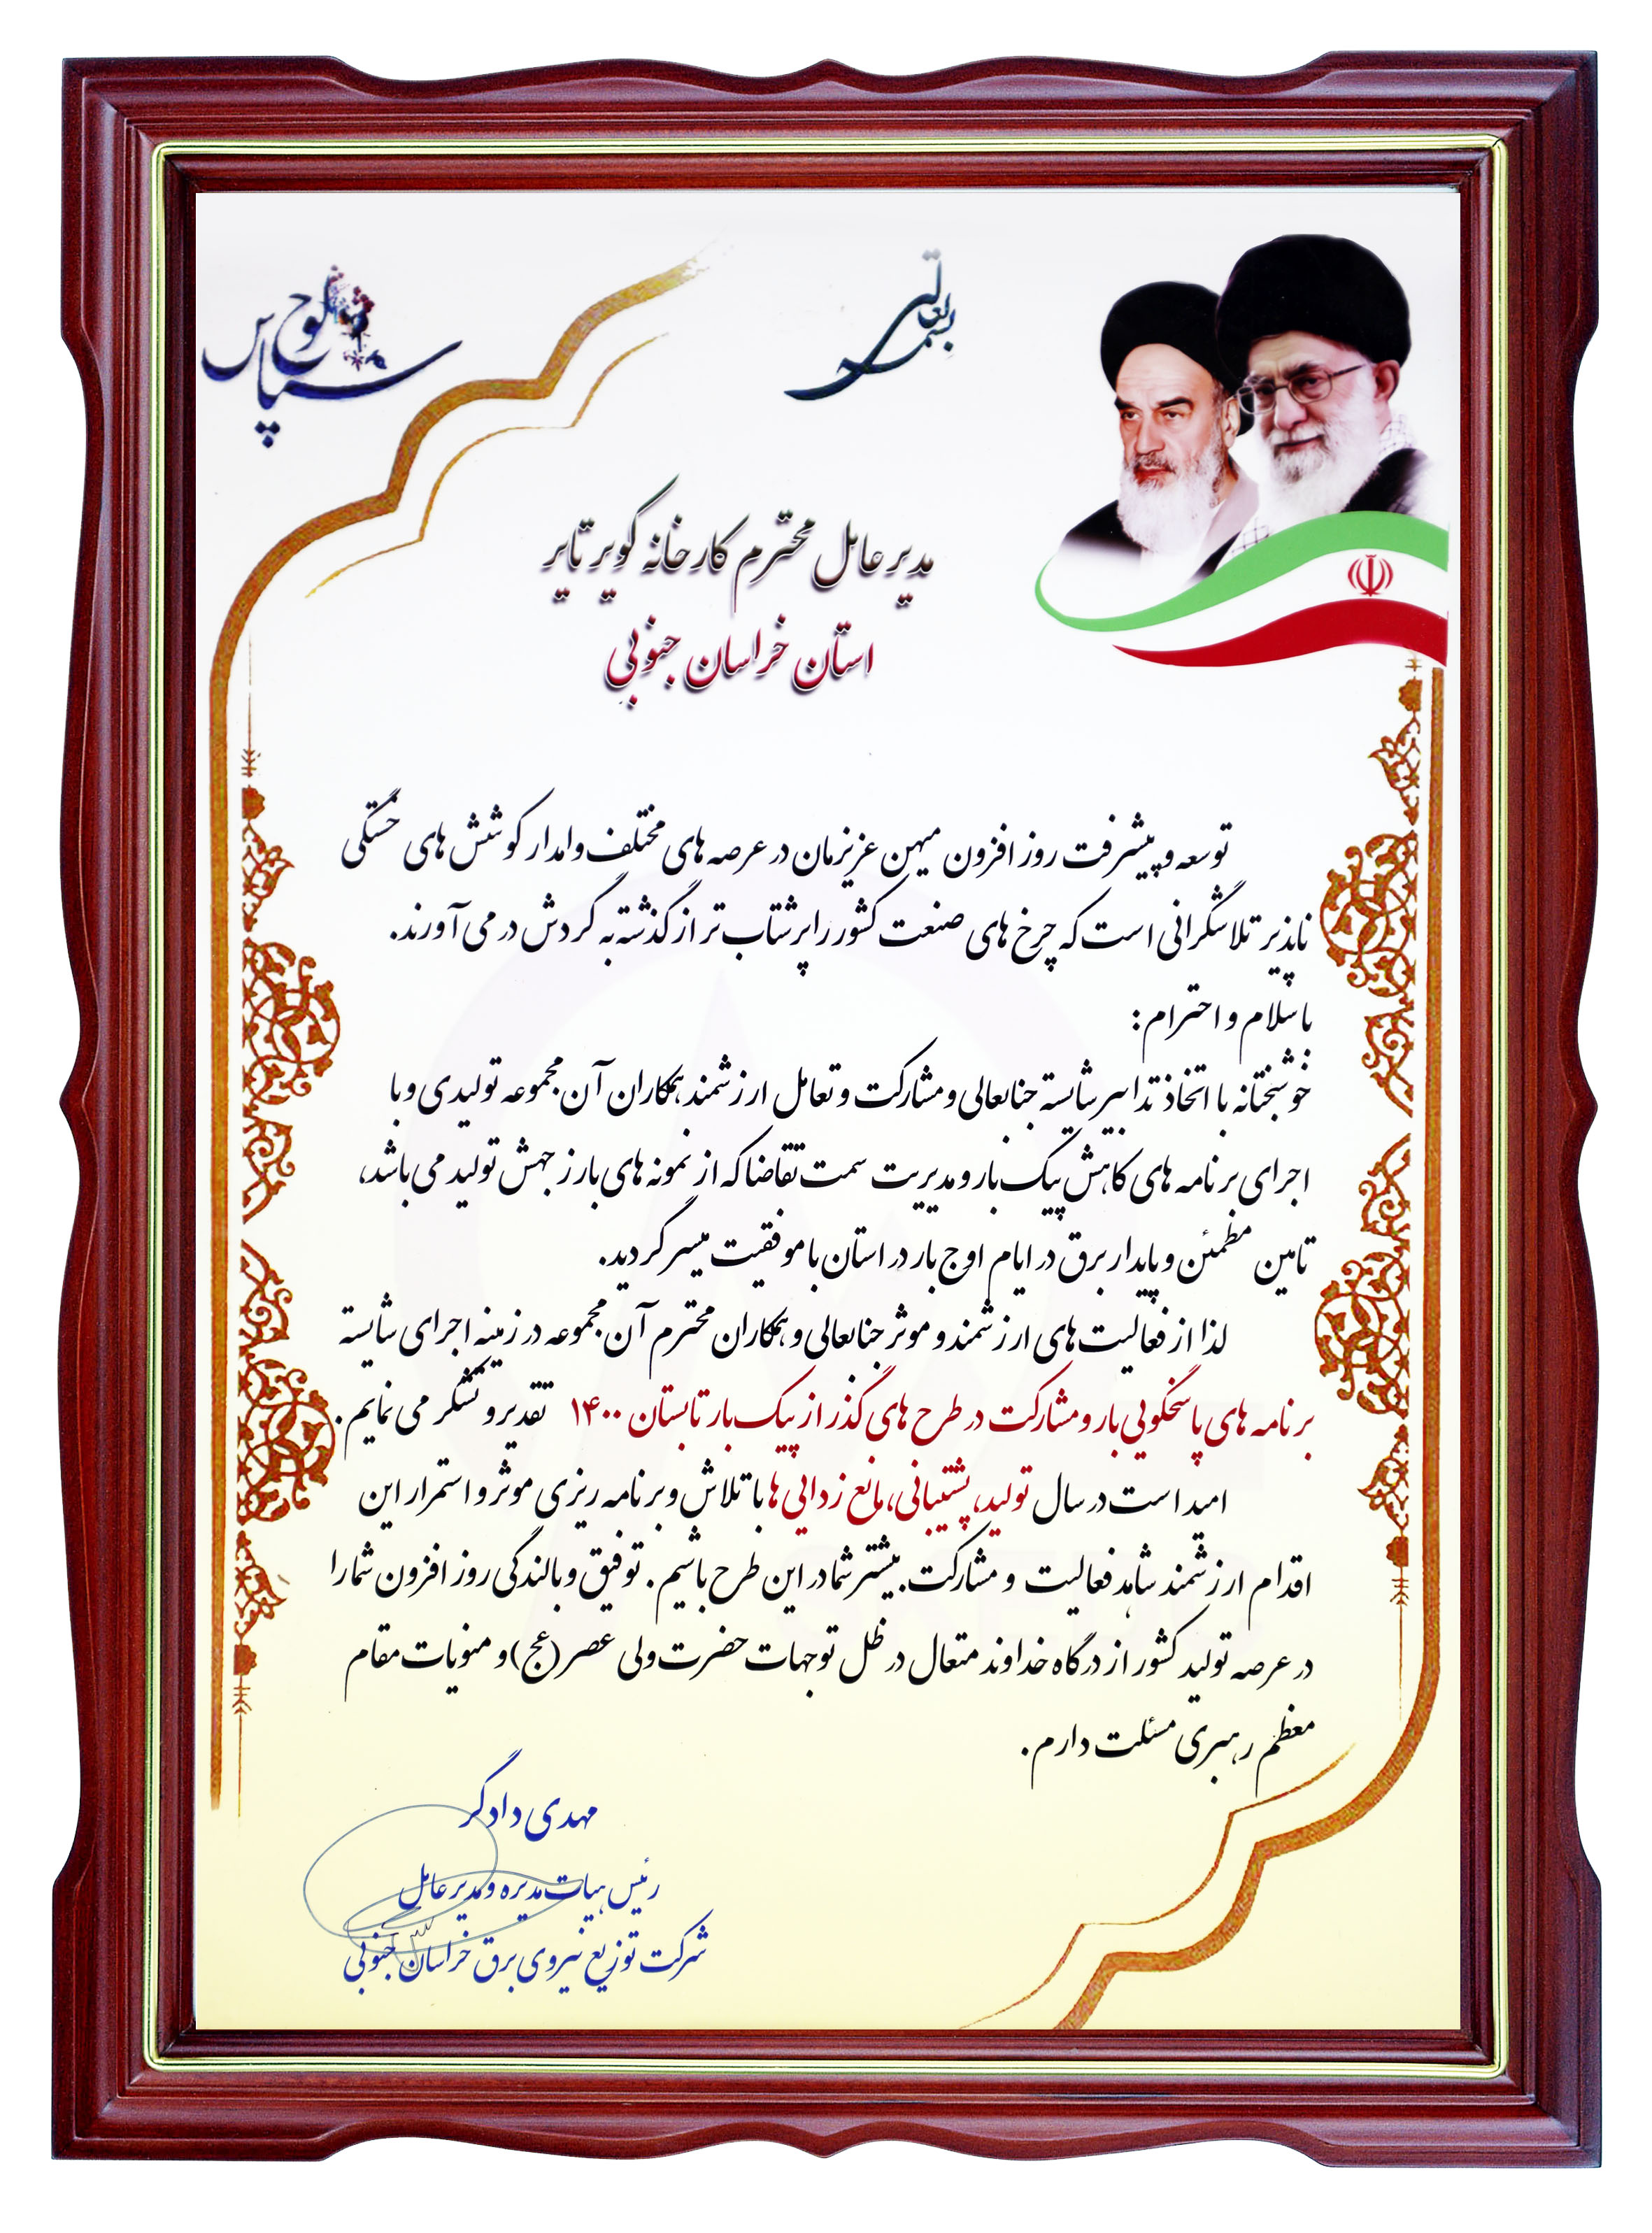 بسمه تعالی
لوح سپاس
مدیر عامل محترم کارخانه کویر تایر
استان خراسان جنوبی
توسعه و پیشرفت روز افزون میهن عزیزمان در عرصه های مختلف وامدار کوشش های خستگی
ناپذیر تلاشگرانی است که چرخ های صنعت کشور را پر شتاب تر از گذشته به گردش در می آورند.
با سلام و احترام:
خوشبختانه با اتخاذ تدابیر شایسته جنابعالی و مشارکت و تعامل ارزشمند همکاران آن مجموعه تولیدی و با
اجرای برنامه های کاهش پیک بار و مدیریت سمت تقاضا که از نمونه های بارز جهش تولید می باشد،
تامین مطمئن و پایدار برق در ایام اوج بار در استان با موفقیت میسر گردید.
لذا از فعالیت های ارزشمند و موثر جنابعالی و همکاران محترم آن مجموعه در زمینه اجرای شایسته
برنامه های پاسخگویی بار و مشارکت در طرح های گذر از پیک بار تابستان ۱۴۰۰ تقدیر و تشکر می نمایم.
امید است در سال تولید، پشتیبانی، مانع زدایی ها با تلاش و برنامه ریزی موثر و استمرار این
اقدام ارزشمند شاهد فعالیت و مشارکت. بیشتر شما در این طرح باشیم. توفیق و بالندگی روز افزون شما را
در عرصه تولید کشور از درگاه خداوند متعال در ظل توجهات حضرت ولی عصر (عج) و منویات مقام
معظم رهبری مسئلت دارم.
مهدی دادگر
رئیس هیات مدیره و مدیر عامل
شرکت توزیع نیروی برق خراسان جنوبی